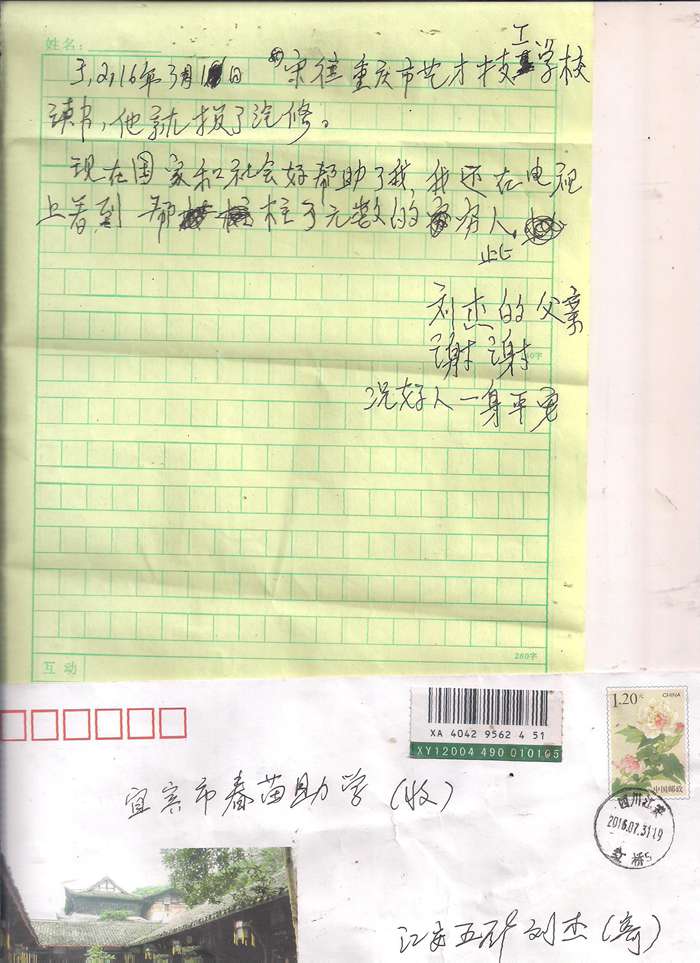 姓名：
于2,16年3月1日 来往重庆市艺才技工学校
读书，他就报了汽修。
现在国家和社会好帮助了我，我还在电视
上看到 帮 柱了元数的 穷人，
此
刘杰的父亲
谢谢
况好人一身平安
280字
互动
XA 4042 9562 4 51
XY12004 490 010105
1.20元
CHINA
中国邮政
四川江安
2016.07.31.19
红桥5
宜宾市春苗助学（收）
江安五矿 刘杰（寄）